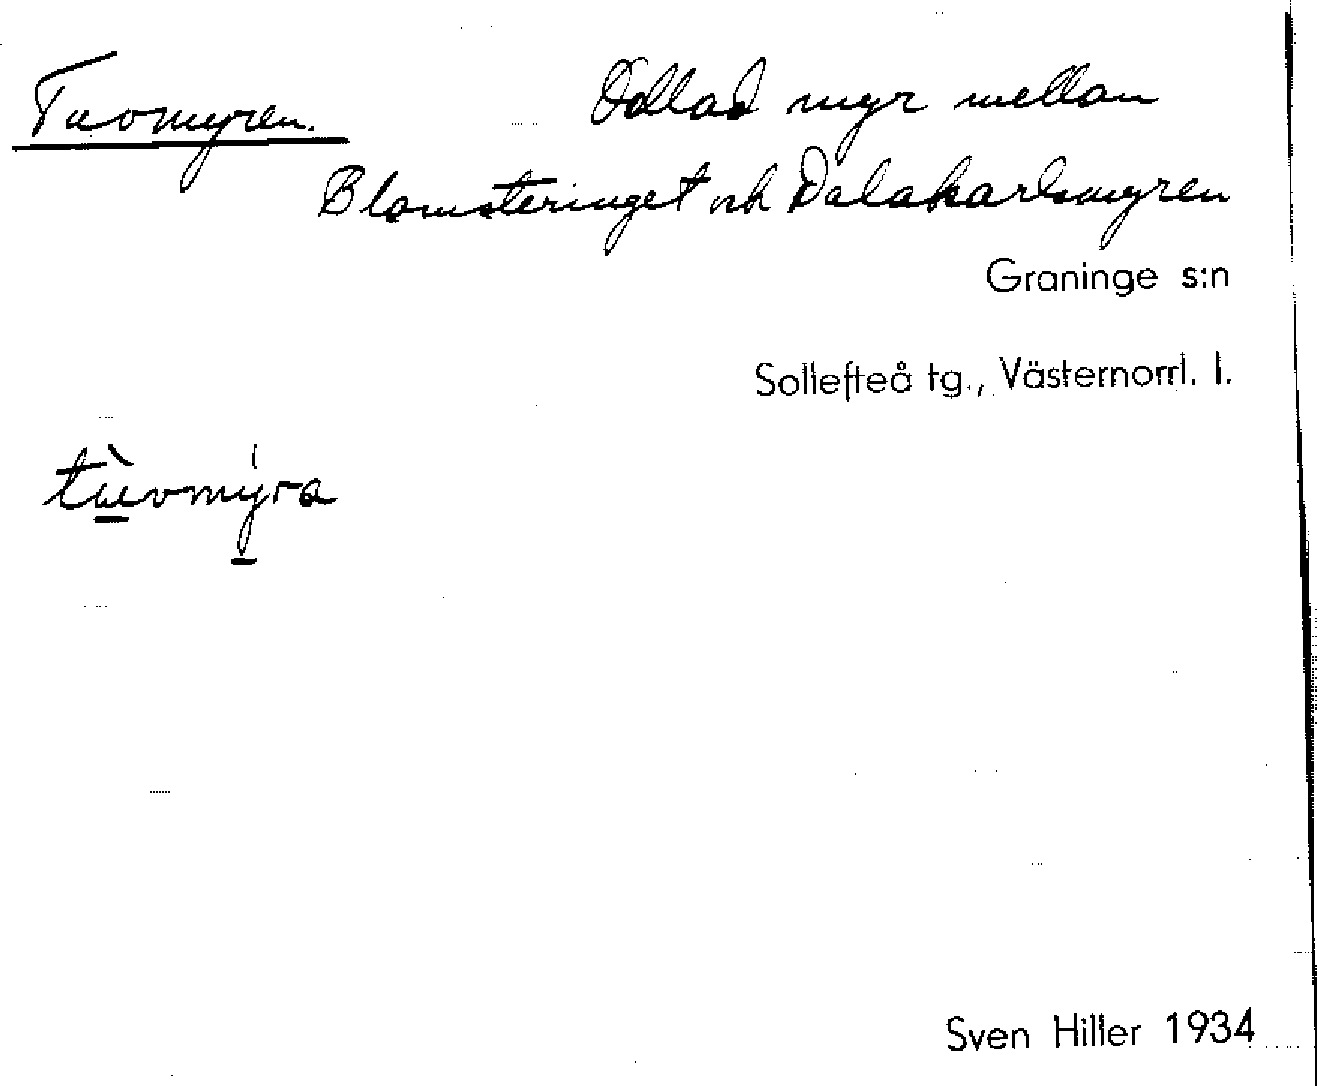 Tuvmyren. Odlad myr mellan
Blomsteringet och Dalakarlsmyren
Graninge s:n
Sollefteå tg., Västernorrl. l.
tùvmýra
Sven Hiller 1934